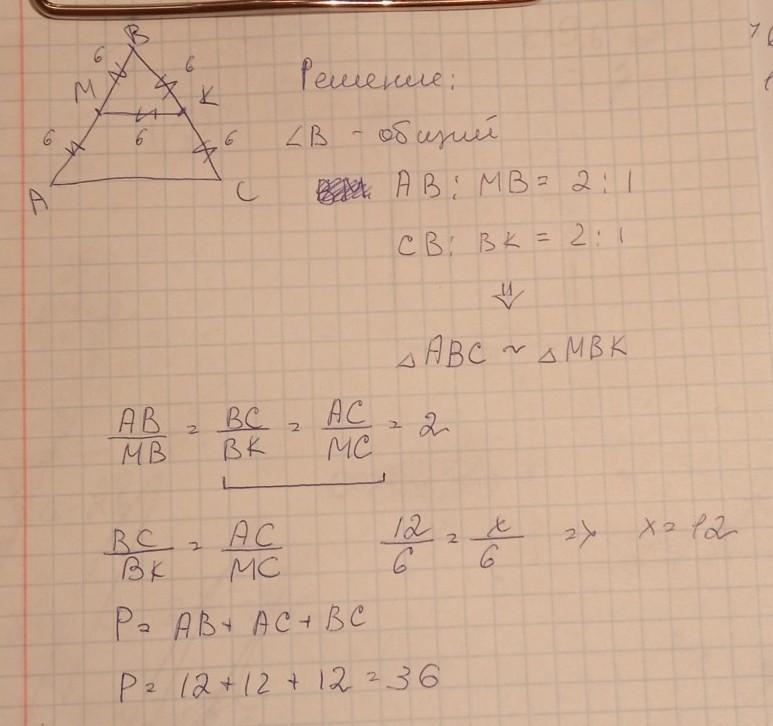 B
6 6
M K
6 6 6
A C
Решение:
∠B - общий
AB : MB = 2 : 1
CB : BK = 2 : 1
⇓
△ABC ~ △MBK
AB/MB = BC/BK = AC/MC = 2
BC/BK = AC/MC 12/6 = x/6 => x = 12
P = AB + AC + BC
P = 12 + 12 + 12 = 36